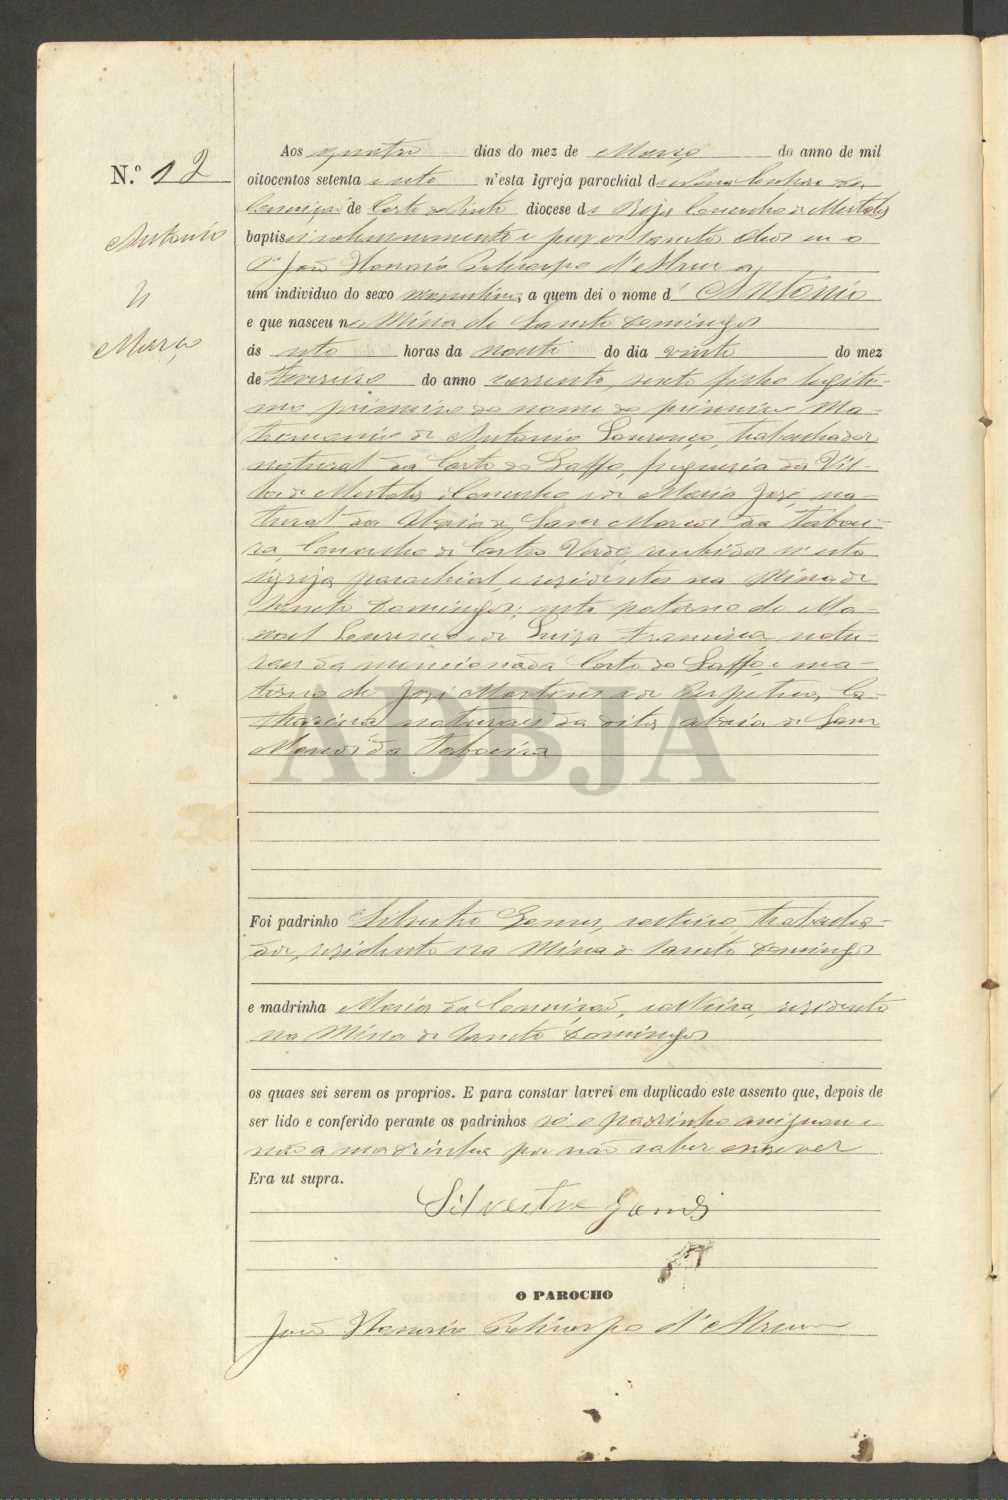 N.º 12
Antonio
4
Março
Aos quatro dias do mez de Março do anno de mil
oitocentos setenta e sete n'esta Igreja parochial de Nossa Senhora da
Conceição de Corte do Pinto diocese de Beja Concelho de Mertola
baptisei solemnemente e puz os sanctos oleos eu o
P.e João Honorio Policarpo d'Abreu
um individuo do sexo masculino, a quem dei o nome d' Antonio
e que nasceu na Mina de Sancto Domingos
ás sete horas da noute do dia vinte do mez
de Fevereiro do anno corrente, sexto filho legiti-
mo primeiro do nome do primeiro Ma-
tromonio de Antonio Lourenço, trabachador
natural da Corte do Gaffo, freguezia da Vil-
la de Mertola, Concelho e de Maria José, na-
tural da Aldeia de Sam Marcos da Taboei-
ra Concelho de Castro Verde, recebidos n'esta
igreja parochial e residentes na Mina de
Sancto Domingos; neto paterno de Ma-
noel Lourenço e de Luiza Francisca, natu-
raes da mencionada Corte do Gaffo, e ma-
terno de José Martins e de Perpetua Ca-
tharina naturaes da dita aldeia de Sam
Marcos da Taboeira
ADBJA
Foi padrinho Silvestre Gomes, solteiro, trabacha-
dor, residente na Mina de Sancto Domingos
e madrinha Maria da Conceição, solteira, residente
na Mina de Sancto Domingos
os quaes sei serem os proprios. E para constar lavrei em duplicado este assento que, depois de
ser lido e conferido perante os padrinhos só o padrinho assignou e
não a madrinha por não saber escrever
Era ut supra.
Silvestre Gomes
O PAROCHO
João Honorio Policarpo d'Abreu